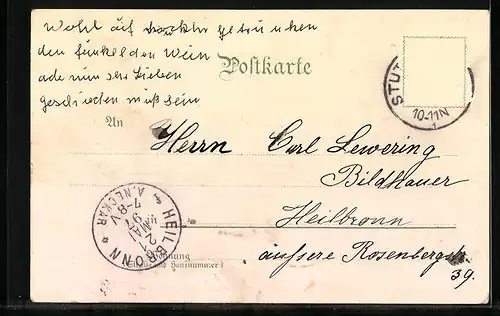 Wohl auf noch getrunken
den funkelnden Wein
ade nun ihr Lieben
geschieden muß sein
Postkarte
An
Herrn Carl Lewering
Bildhauer
Heilbronn
äussere Rosenbergstr.
39.
STUT
10-11N
HEILBRONN
A. NECKAR
7-8V
97
MAI
2
Wohnung
(Straße und Hausnummer)